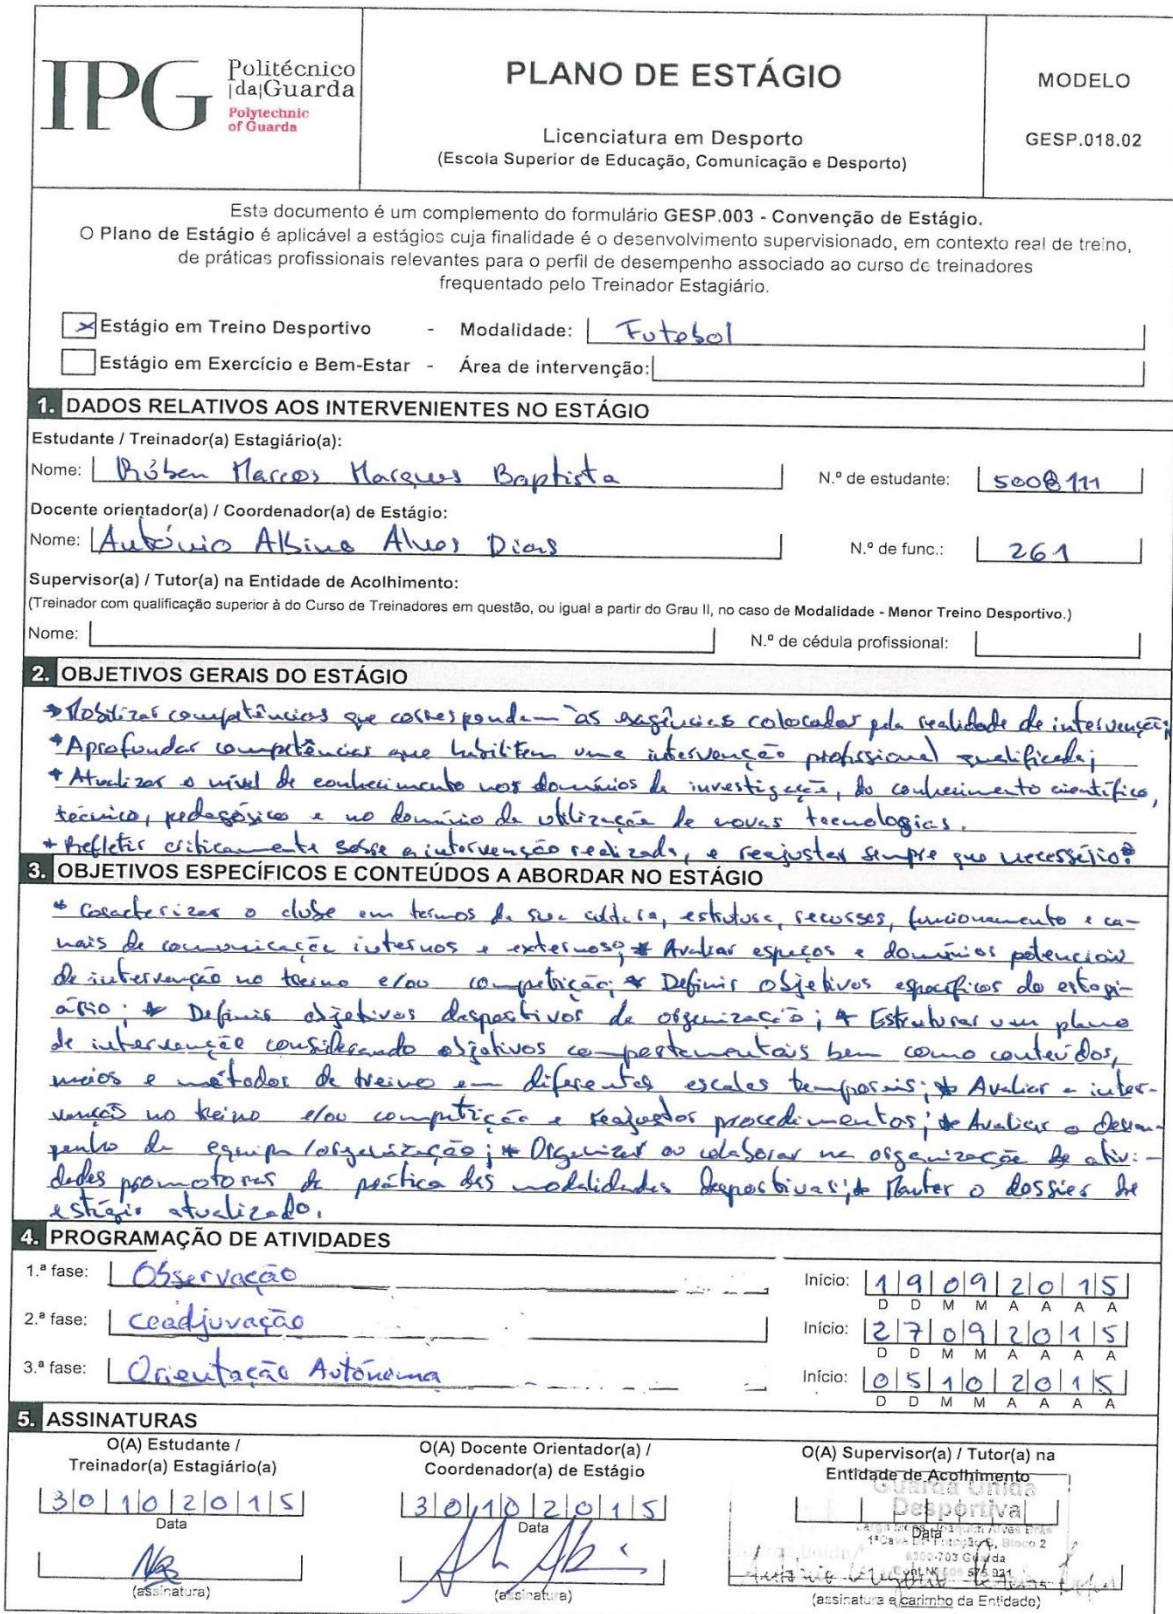 IPG Politécnico
|da|Guarda
Polytechnic
of Guarda
PLANO DE ESTÁGIO
Licenciatura em Desporto
(Escola Superior de Educação, Comunicação e Desporto)
MODELO
GESP.018.02
Este documento é um complemento do formulário GESP.003 - Convenção de Estágio.
O Plano de Estágio é aplicável a estágios cuja finalidade é o desenvolvimento supervisionado, em contexto real de treino,
de práticas profissionais relevantes para o perfil de desempenho associado ao curso de treinadores
frequentado pelo Treinador Estagiário.
x Estágio em Treino Desportivo - Modalidade: Futebol
Estágio em Exercício e Bem-Estar - Área de intervenção:
1. DADOS RELATIVOS AOS INTERVENIENTES NO ESTÁGIO
Estudante / Treinador(a) Estagiário(a):
Nome: Rúben Marcos Marques Baptista N.º de estudante: 5008111
Docente orientador(a) / Coordenador(a) de Estágio:
Nome: António Albino Alves Dias N.º de func.: 261
Supervisor(a) / Tutor(a) na Entidade de Acolhimento:
(Treinador com qualificação superior à do Curso de Treinadores em questão, ou igual a partir do Grau II, no caso de Modalidade - Menor Treino Desportivo.)
Nome: N.º de cédula profissional:
2. OBJETIVOS GERAIS DO ESTÁGIO
* Mobilizar competências que correspondam às exigências colocadas pela realidade de intervenção;
* Aprofundar competências que habilitem uma intervenção profissional qualificada;
* Atualizar o nível de conhecimento nos domínios da investigação, do conhecimento científico,
técnico, pedagógico e no domínio da utilização de novas tecnologias.
* Refletir criticamente sobre a intervenção realizada, e reajustar sempre que necessário.
3. OBJETIVOS ESPECÍFICOS E CONTEÚDOS A ABORDAR NO ESTÁGIO
* Caracterizar o clube em termos da sua cultura, estrutura, recursos, funcionamento e ca-
nais de comunicação internos e externos; * Avaliar espaços e domínios potenciais
de intervenção no treino e/ou competição; * Definir objetivos específicos do estagi-
ário; * Definir objetivos desportivos da organização; * Estruturar um plano
de intervenção considerando objetivos comportamentais bem como conteúdos,
meios e métodos de treino em diferentes escalas temporais; * Avaliar a inter-
venção no treino e/ou competição e reajustar procedimentos; * Avaliar o desem-
penho da equipa/organização; * Organizar ou colaborar na organização de ativi-
dades promotoras da prática das modalidades desportivas; * Manter o dossier de
estágio atualizado.
4. PROGRAMAÇÃO DE ATIVIDADES
1.ª fase: Observação Início: 19092015
D D M M A A A A
2.ª fase: Coadjuvação Início: 27092015
D D M M A A A A
3.ª fase: Orientação Autónoma Início: 05102015
D D M M A A A A
5. ASSINATURAS
O(A) Estudante /
Treinador(a) Estagiário(a)
30102015
Data
(assinatura)
O(A) Docente Orientador(a) /
Coordenador(a) de Estágio
30102015
Data
(assinatura)
O(A) Supervisor(a) / Tutor(a) na
Entidade de Acolhimento
Guarda Unida
Desportiva
Data
Bloco 2
6300-703 Guarda
(assinatura e carimbo da Entidade)